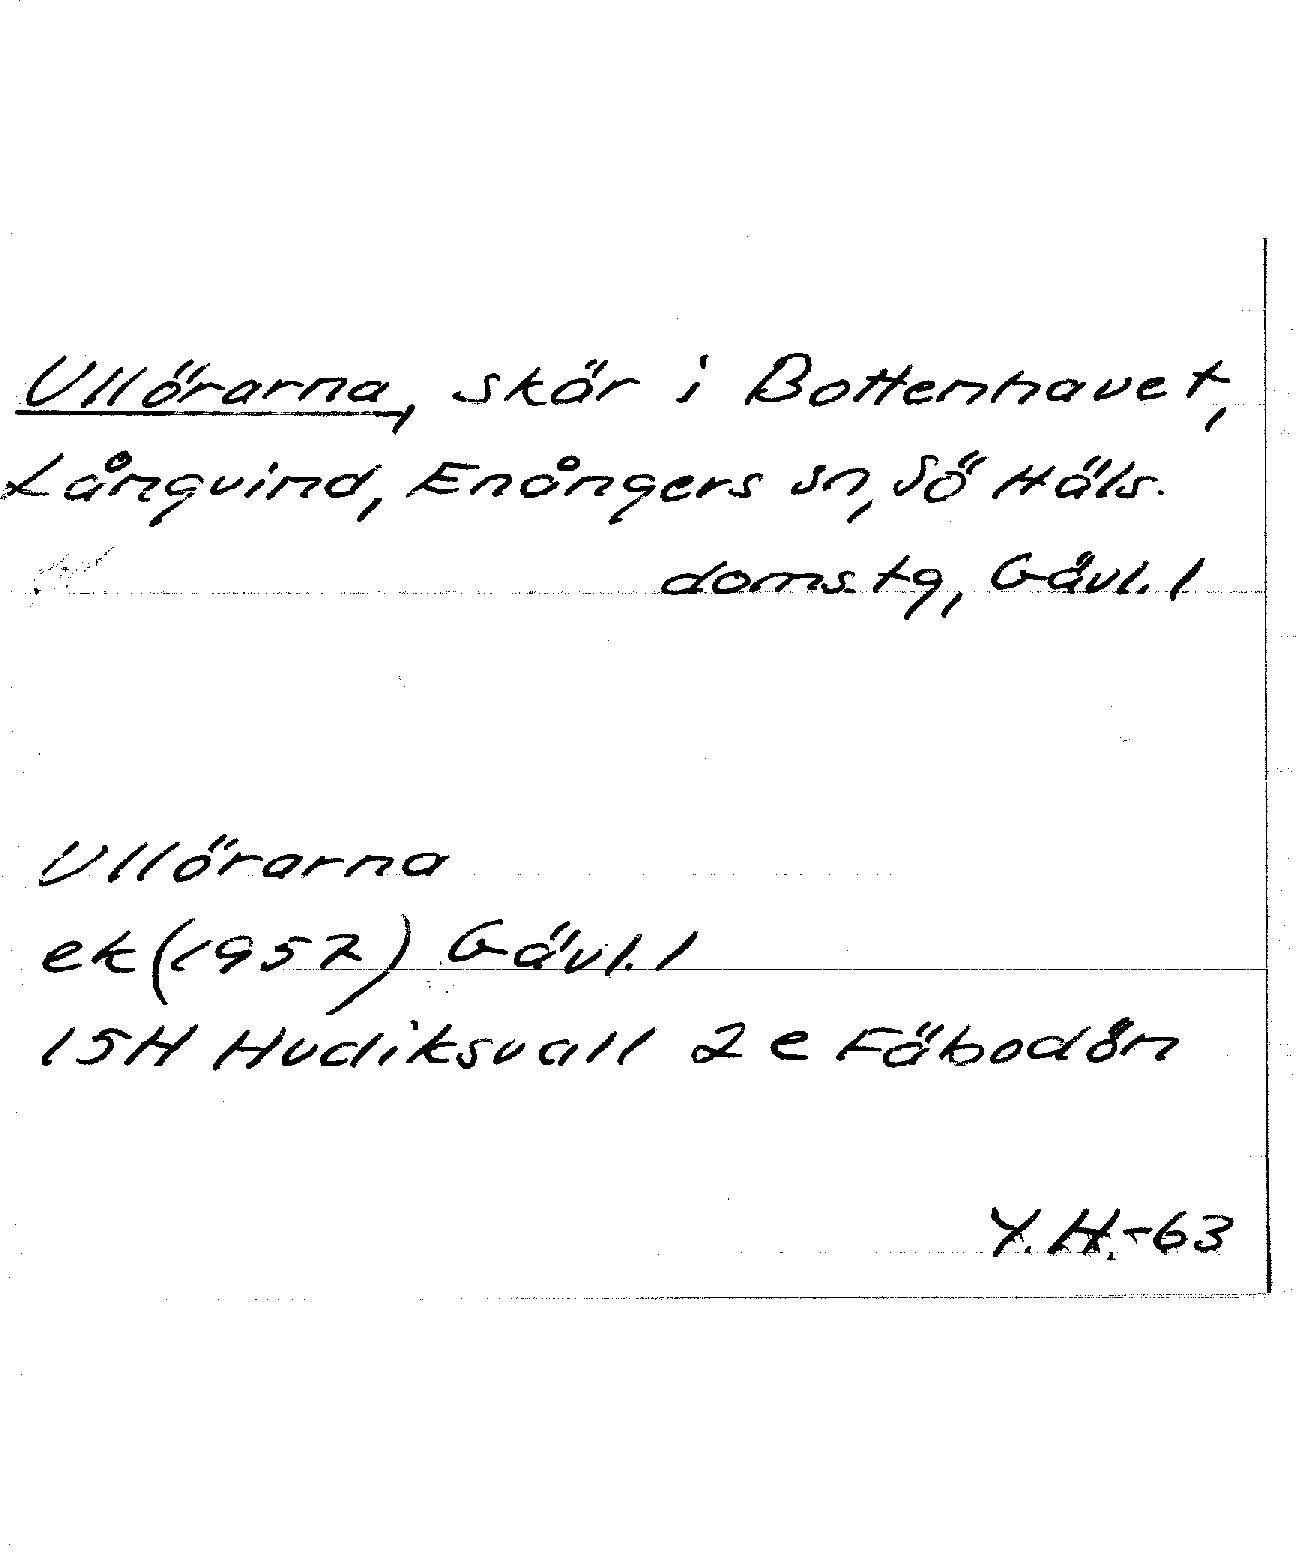 Ullörarna, skär i Bottenhavet,
Långvind, Enångers sn, Sö Häls.
doms.tg, Gävl. l
Ullörarna
ek (1957) Gävl. l
15H Hudiksvall 2 e Fäbodån
Y.H.-63